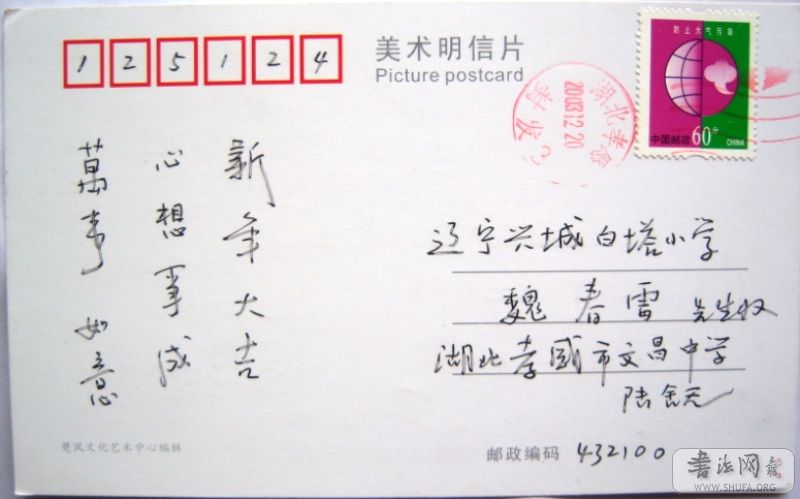 125124
美术明信片
Picture postcard
防止大气污染
中国邮政 60分 CHINA
湖北孝感
2003.12.20
新年大吉
心想事成
萬事如意
辽宁兴城白塔小学
魏春雷 先生收
湖北孝感市文昌中学
楚风文化艺术中心编辑
邮政编码 432100
书法网
WWW.SHUFA.ORG